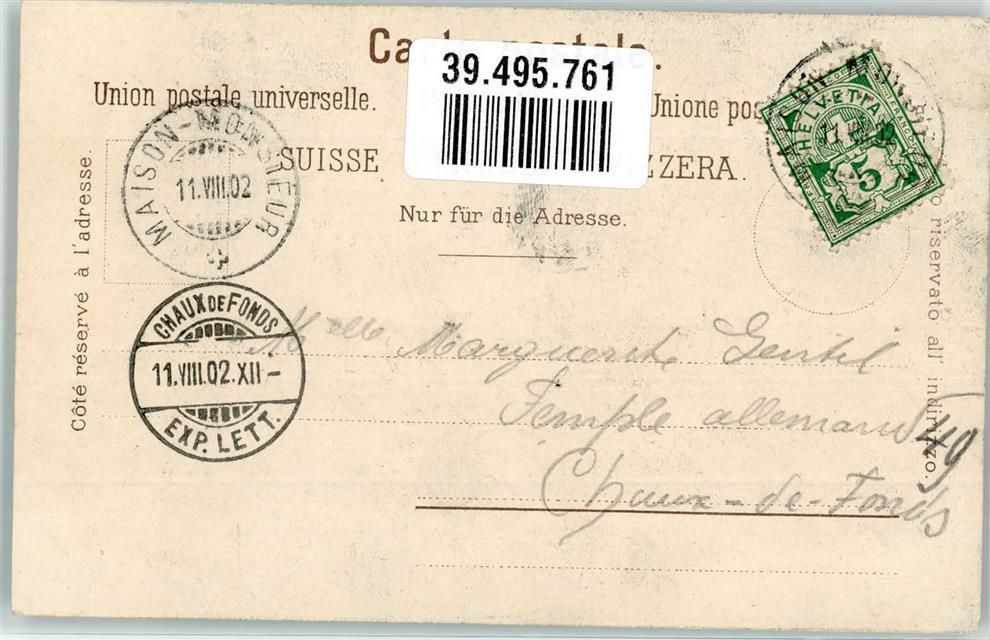 Carte postale.
39.495.761
Union postale universelle.
Unione pos
SUISSE
ZZERA.
Nur für die Adresse.
Côté réservé à l'adresse.
o riservato all' indirizzo.
MAISON-MONSIEUR
11.VIII.02
HELVETIA
5
CHAUX DE FONDS
11.VIII.02.XII-
EXP. LETT.
Melle Marguerite Gentil
Temple allemand 49
Chaux-de-Fonds